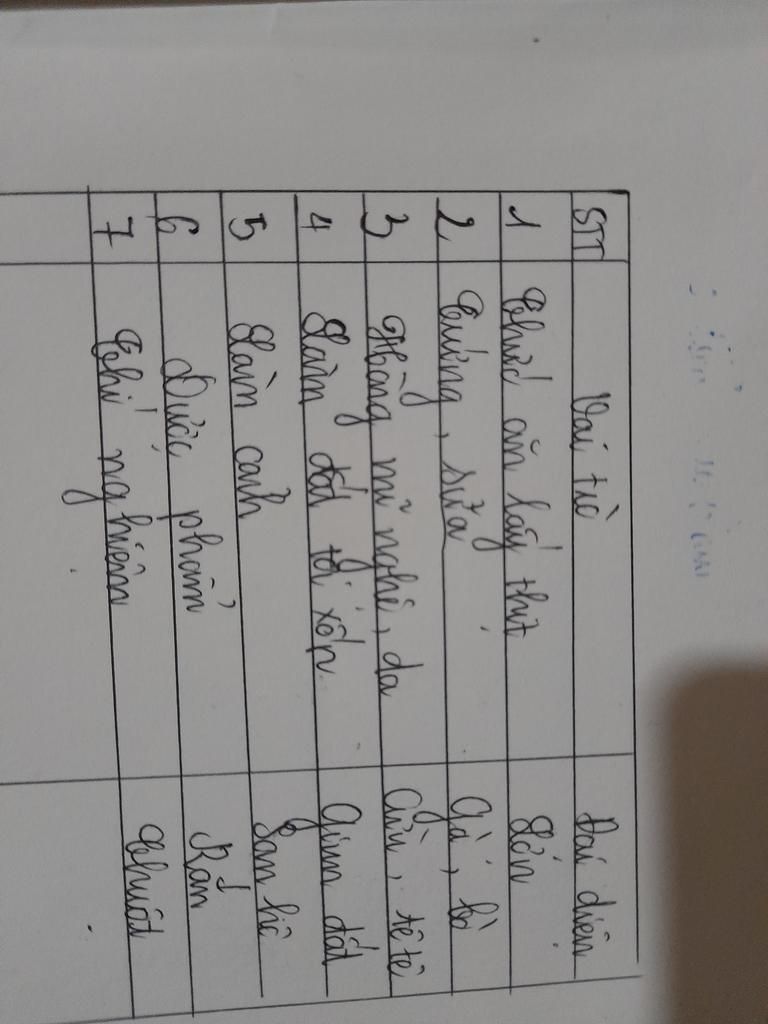 STT Vai trò Đại diện
1 Thức ăn lấy thịt Lợn
2 Trứng, sữa Gà, bò
3 Hồng mĩ nghê, da Cừu, tê tê
4 Làm đất tơi xốp Giun đất
5 Làm cảnh San hô
6 Dược phẩm Rắn
7 Thí nghiệm Chuột